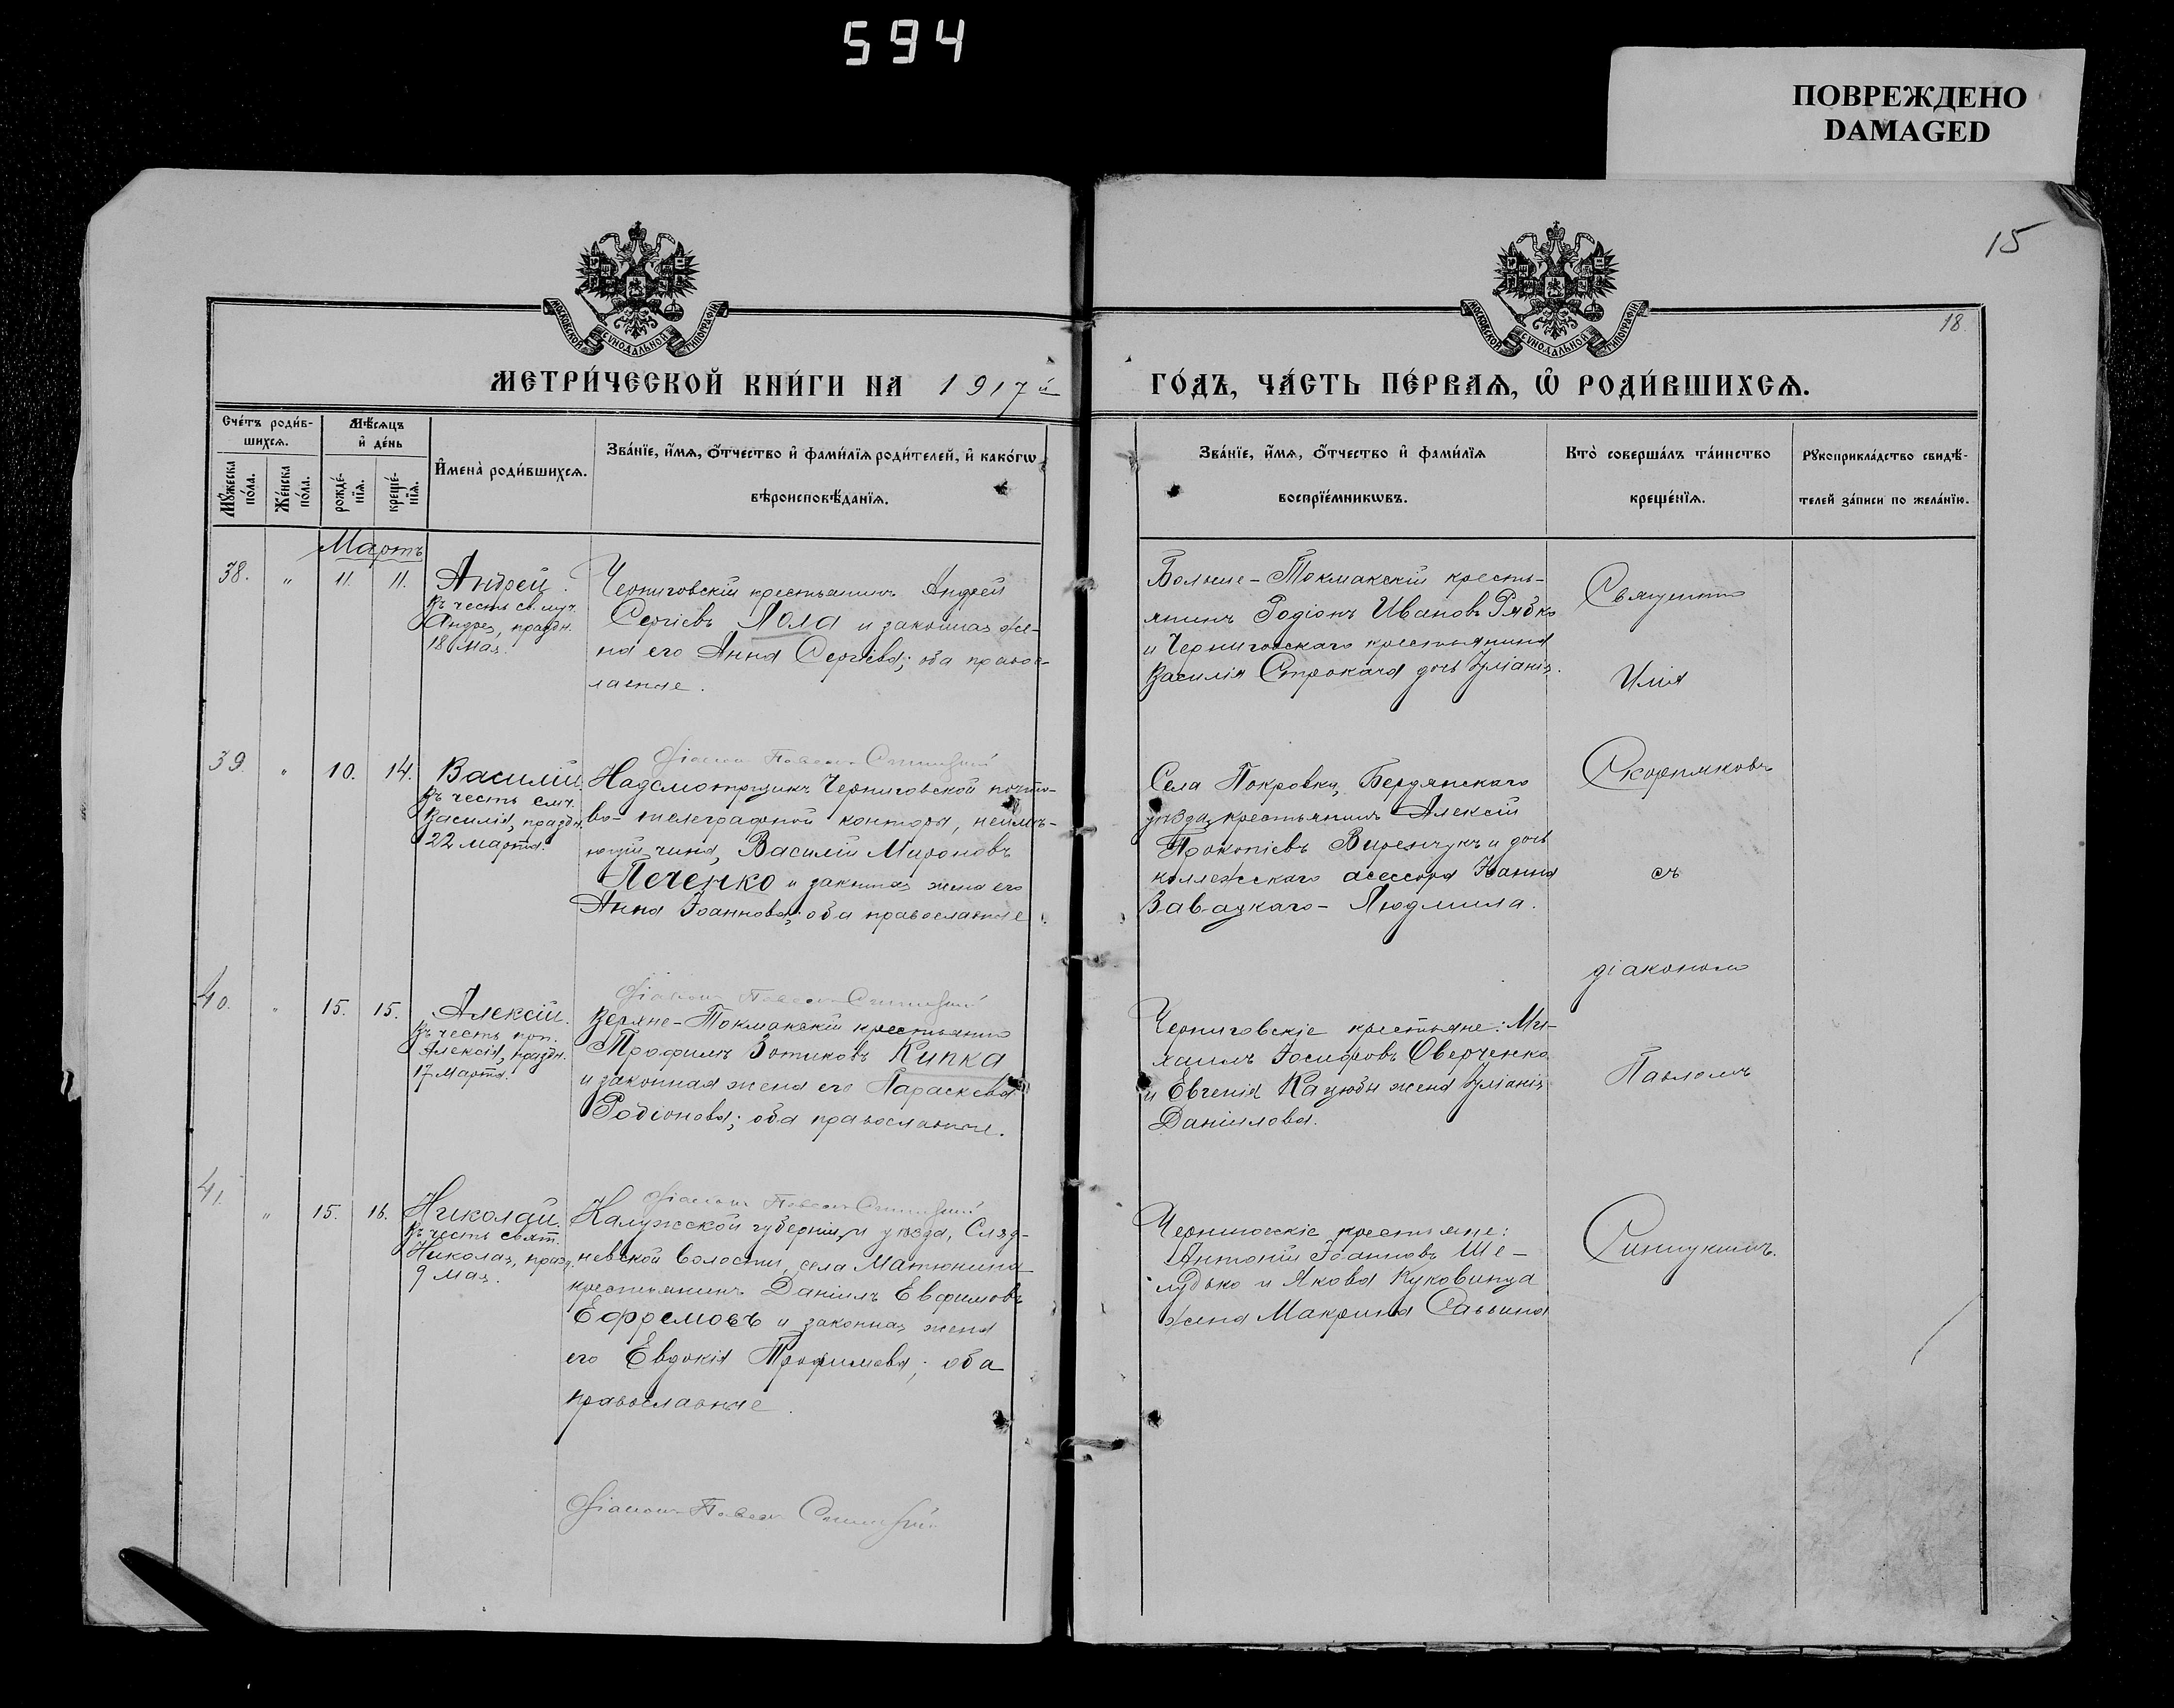 594
ПОВРЕЖДЕНО
DAMAGED
15
18.
МОСКОВСКОЙ СѴНОДАЛЬНОЙ ТИПОГРАФІИ
МОСКОВСКОЙ СѴНОДАЛЬНОЙ ТИПОГРАФІИ
МЕТРИ́ЧЕСКОЙ КНИ́ГИ НА 1917й
ГО́ДЪ, ЧА́СТЬ ПЕ́РВАѦ, Ѡ҆ РОДИ́ВШИХСѦ.
Сче́тъ роди́в-
шихсѧ.
Мꙋ́жеска
по́ла.
Же́нска
по́ла.
Мѣ́сѧцъ
и҆ де́нь
рожде́-
нїѧ.
креще́-
нїѧ.
И҆мена̀ роди́вшихсѧ.
Зва́нїе, и҆́мѧ, ѻ҆́тчество и҆ фами́лїѧ роди́телей, и҆ како́гѡ
вѣроисповѣ́данїѧ.
Зва́нїе, и҆́мѧ, ѻ҆́тчество и҆ фами́лїѧ
воспрїе́мникѡвъ.
Кто̀ соверша́лъ та́инство
креще́нїѧ.
Рꙋкоприкла́дство свидѣ́-
телей за́писи по жела́нїю.
Мартъ
38. " 11. 11. Андрей.
Въ честь св. муч.
Андрея, праздн.
18 Мая.
Черниговскій крестьянинъ Андрей
Сергіевъ Лола и законная же-
на его Анна Сергіева; оба правос-
лавные.
Больше-Токмакскій кресть-
янинъ Родіонъ Ивановъ Рябко
и Черниговскаго крестьянина
Василія Строкача дочь Іуліанія.
Священно
Илія
Діаконъ Павелъ
39. " 10. 14. Василій.
Въ честь смч.
Василія, праздн.
22 марта.
Надсмотрщикъ Черниговской почто-
во-телеграфной конторы, неимѣ-
ющій чина, Василій Мироновъ
Печенко и законная жена его
Анна Іоаннова; оба православные.
Села Покровки, Бердянскаго
уѣзда, крестьянинъ Алексій
Прокопіевъ Виренчукъ и дочь
коллежскаго асессора Іоанна
Завацкаго- Людмила.
Скоряковъ
съ
діакономъ
Діаконъ Павелъ
40. " 15. 15. Алексій.
Въ честь прп.
Алексія, праздн.
17 Марта.
Верхне-Токмакскій крестьянинъ
Трофимъ Зотиковъ Кипка
и законная жена его Параскева
Родіонова; оба православные.
Черниговскіе крестьяне: Ми-
хаилъ Іосифовъ Оверченко
и Евгенія Кацюбы жена Іуліанія
Даніилова.
Павломъ
Діаконъ Павелъ
41. " 15. 16. Николай.
Въ честь свят.
Николая, празд.
9 Мая.
Калужской губерніи и уѣзда,
волости, села Матюнина
крестьянинъ Даніилъ Евфимовъ
Ефремовъ и законная жена
его Евдокія Трофимова; оба
православные.
Черниговскіе крестьяне:
Антоній Іоанновъ Ше-
лудько и Якова Куковинца
жена Макрина Саввина
Діаконъ Павелъ